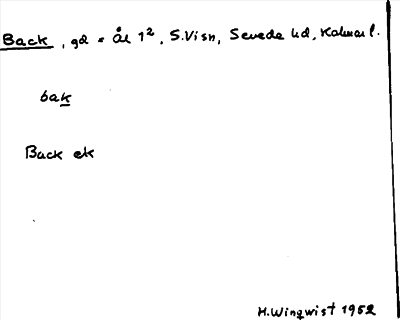 Back, gd = Ål 1², S. Visn, Sevede hd, Kalmar l.
bak
Back ek
H. Wingwist 1952